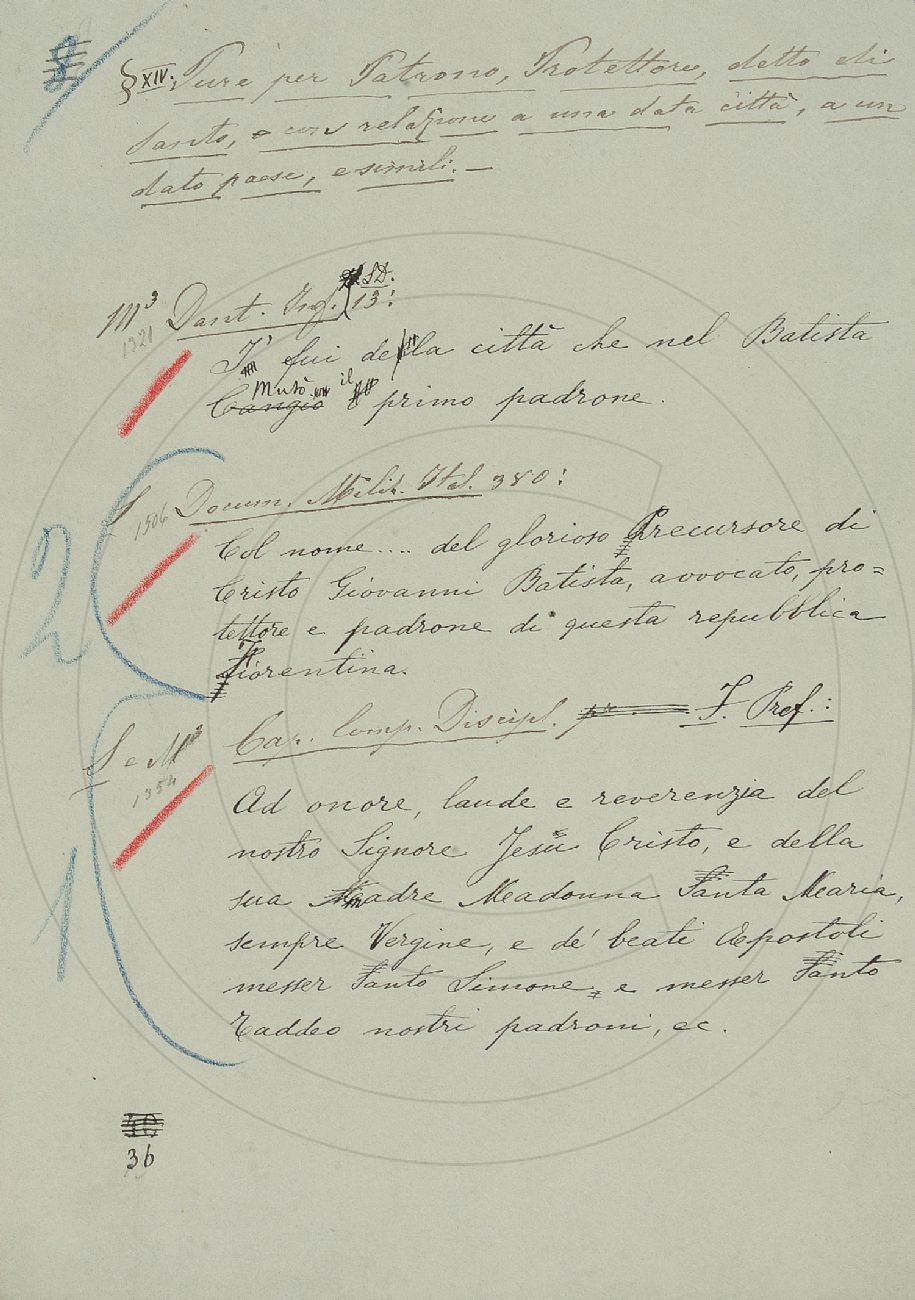 8
§ XIV. Pure per Patrono, Protettore, detto di
Santo, e con relazione a una data città, a un
dato paese, e simili. —
SD.
M³ Dant. Inf. 13:
1321
I' fui della città che nel Batista
Mutò il
Cangiò primo padrone.
S Docum. Miliz. Ital. 380:
1506
Col nome.... del glorioso Precursore di
2 Cristo Giovanni Batista, avvocato, pro=
tettore e padrone di questa repubblica
Fiorentina.
S e M³ Cap. Comp. Discipl. F. Pref.:
1354
Ad onore, laude e reverenzia del
nostro Signore Jesù Cristo, e della
1 sua madre Madonna Santa Maria,
sempre Vergine, e de' beati Apostoli
messer Santo Simone e messer Santo
Taddeo nostri padroni, ec.
36